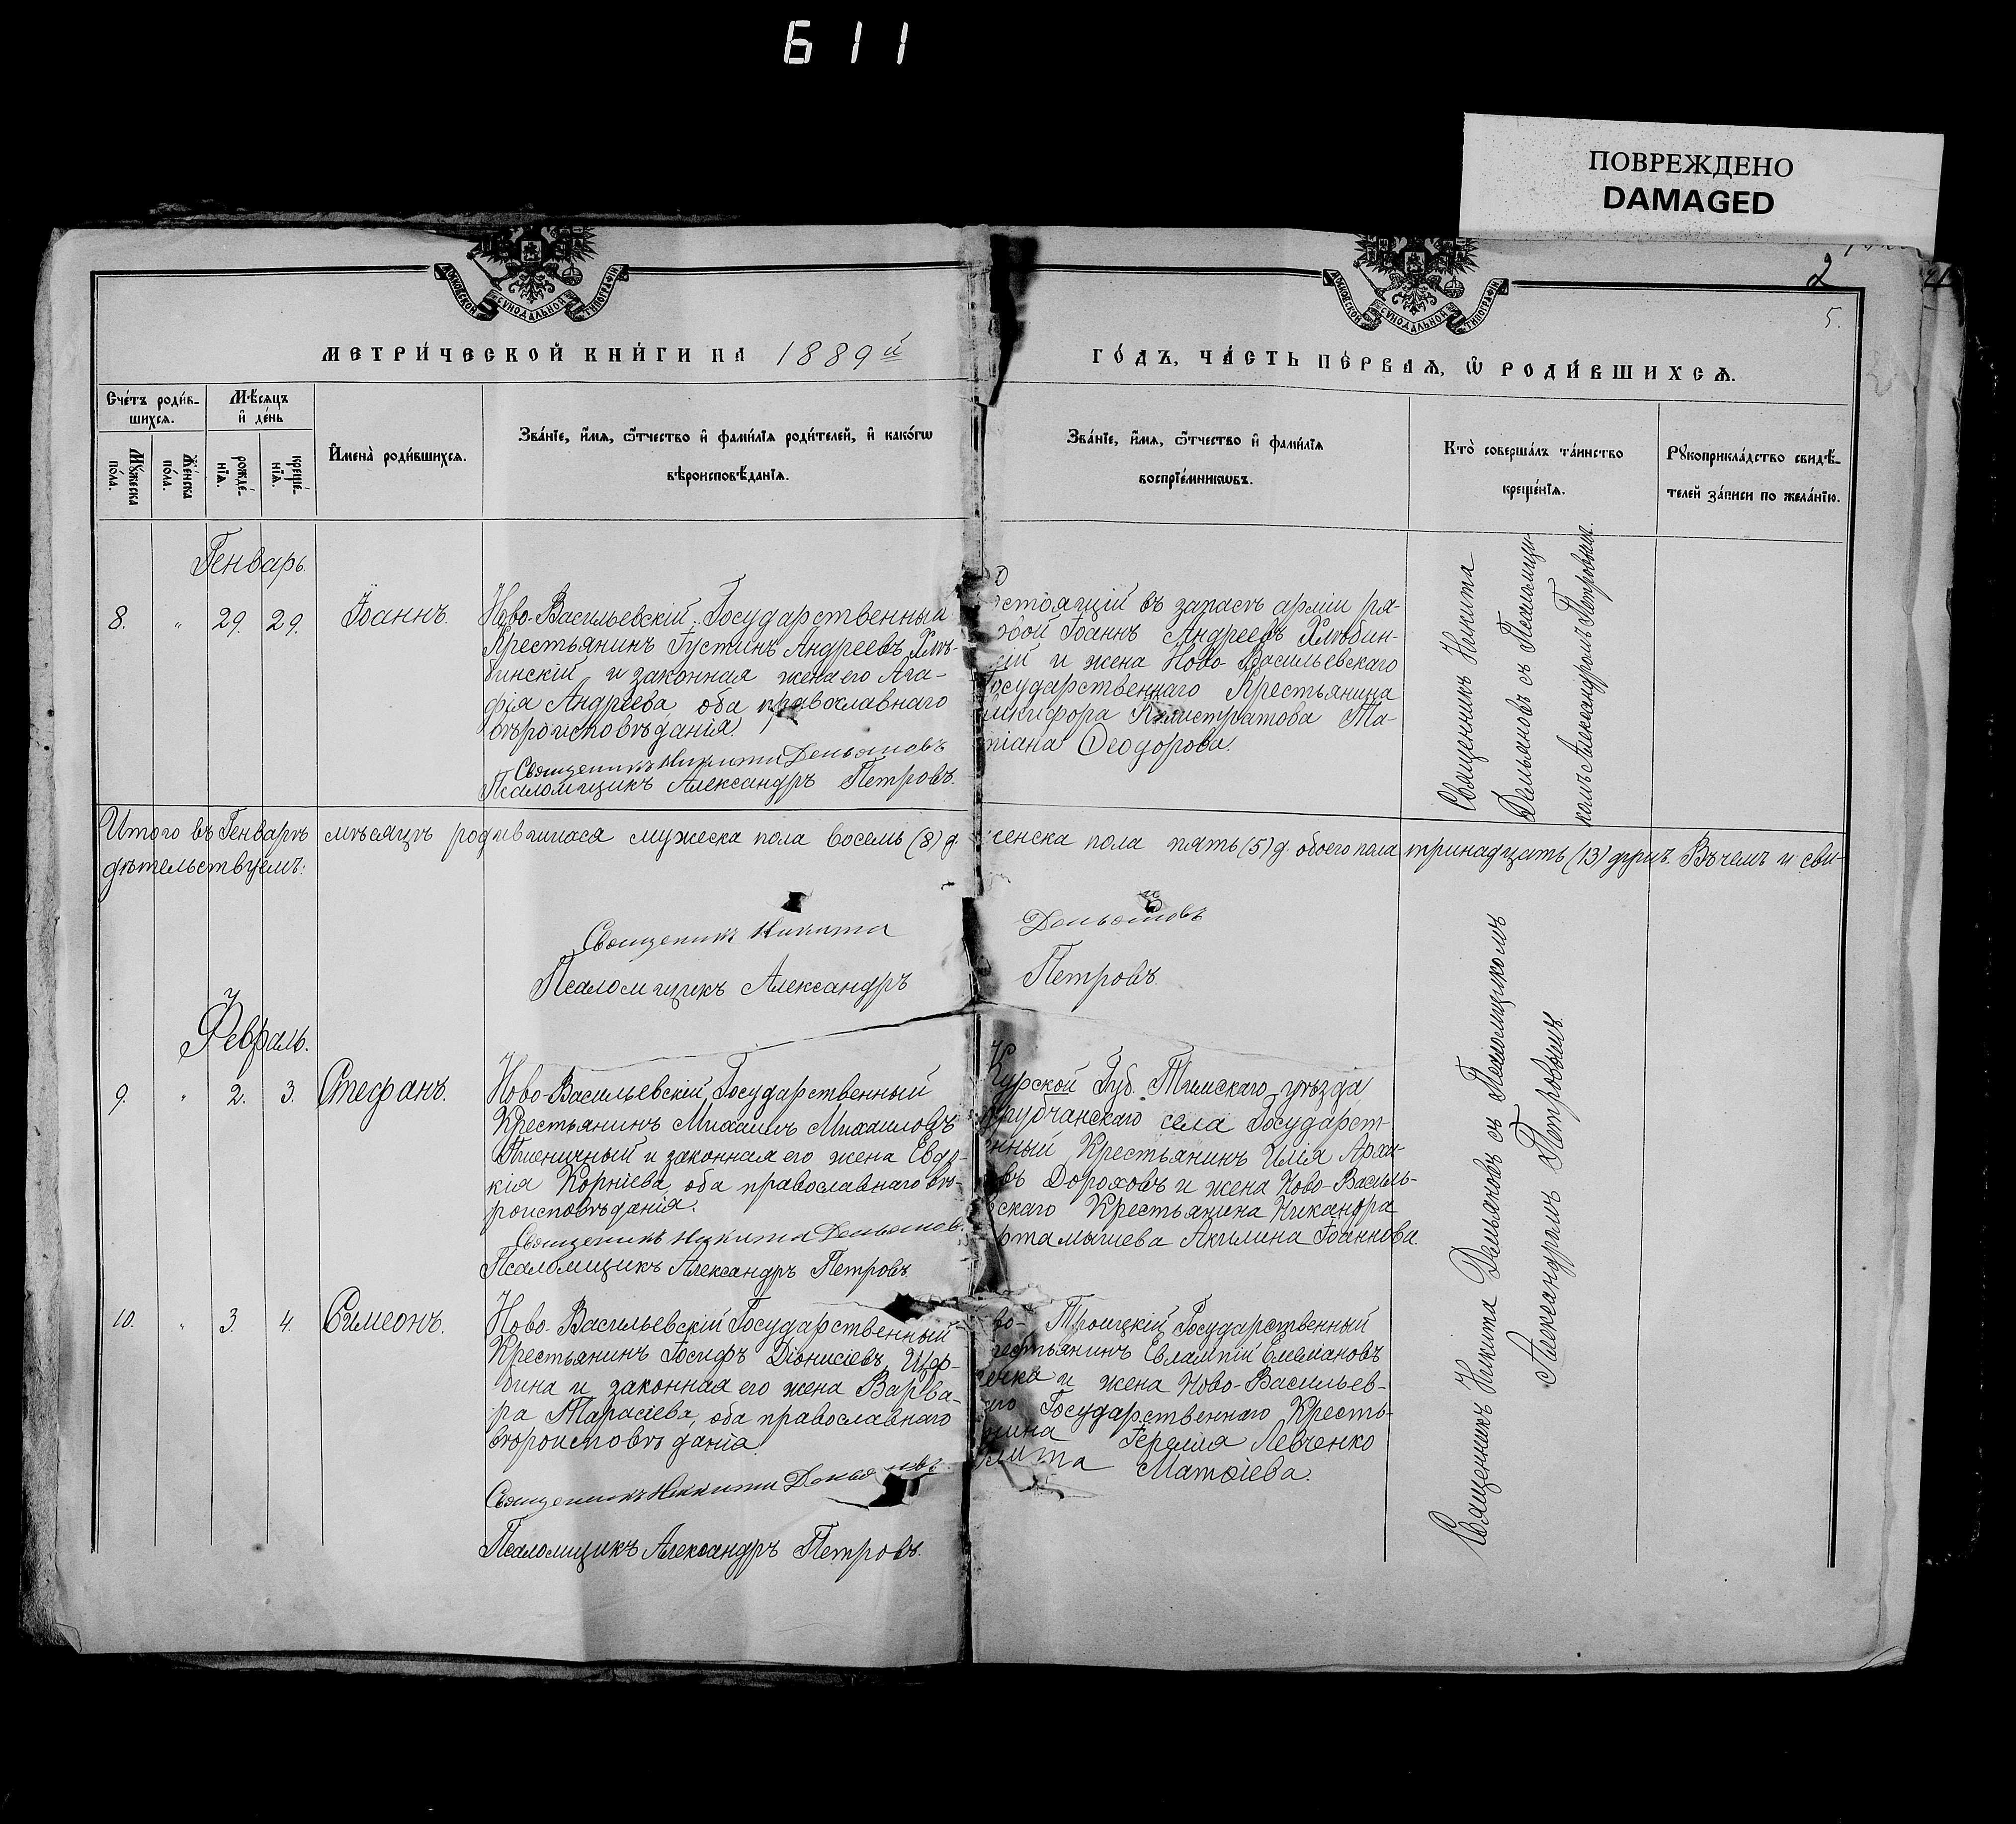 611
ПОВРЕЖДЕНО
DAMAGED
МОСКОВСКОЙ СѴНОДАЛЬНОЙ ТИПОГРАФІИ
МОСКОВСКОЙ СѴНОДАЛЬНОЙ ТИПОГРАФІИ
2
5.
МЕТРИ́ЧЕСКОЙ КНИ́ГИ НА 1889й
ГО́ДЪ, ЧА́СТЬ ПЕ́РВАѦ, Ѿ РОДИ́ВШИХСѦ.
Сче́тъ роди́в-
шихсѧ.
Мѣ́сѧцъ
и҆ де́нь
Мꙋ́жеска
по́ла.
Же́нска
по́ла.
рожде́-
нїѧ.
креще́-
нїѧ.
И҆мена̀ роди́вшихсѧ.
Зва́нїе, и҆́мѧ, ѻ҆́тчество и҆ фами́лїѧ роди́телей, и҆ како́гѡ
вѣроисповѣ́данїѧ.
Зва́нїе, и҆́мѧ, ѻ҆́тчество и҆ фами́лїѧ
воспрїе́мникѡвъ.
Кто̀ соверша́лъ та́инство
креще́нїѧ.
Рꙋкоприкла́дство свидѣ́-
телей за́писи по жела́нїю.
Генварь.
8. " 29. 29. Іоаннъ.
Ново-Васильевскій Государственный
Крестьянинъ Густинъ Андреевъ Хлѣ-
бинскій и законная жена его Ага-
фія Андреева оба православнаго
вѣроисповѣданія.
Священикъ Никита Демьяновъ
Псаломщикъ Александръ Петровъ.
стоящій въ запасѣ арміи ря-
вой Іоаннъ Андреевъ Хлѣбин-
кій и жена Ново-Васильевскаго
Государственнаго Крестьянина
Никифора Калистратова Та-
тіана Ѳеодорова.
Священникъ Никита
Демьяновъ съ Псаломщи-
комъ Александромъ Петровымъ.
Итого въ Генварѣ мѣсяцѣ родившихся мужеска пола восемь (8) д. женска пола пять (5) д. обоего пола тринадцать (13) душъ. Въ чемъ и сви-
дѣтельствуемъ:
Священикъ Никита Демьяновъ
Псаломщикъ Александръ Петровъ.
Февраль.
9. " 2. 3. Стефанъ.
Ново-Васильевскій Государственный
Крестьянинъ Михаилъ Михаиловъ
Пшеничный и законная его жена Евдо-
кія Корніева, оба православнаго вѣ-
роисповѣданія.
Священикъ Никита Демьянов.
Псаломщикъ Александръ Петровъ.
Курской Губ. Тимскаго уѣзда
села Государст-
нный Крестьянинъ Илія Архи-
въ Дороховъ и жена Ново-Василь-
вскаго Крестьянина Никандра
ртамышева Акилина Іоаннова.
10. " 3. 4. Симеонъ.
Ново-Васильевскій Государственный
Крестьянинъ Іосифъ Діонисіевъ
и законная его жена Варва-
ра Тарасіева, оба православнаго
вѣроисповѣданія.
Священикъ Никита Демьяновъ
Псаломщикъ Александръ Петровъ.
во-Троицкій Государственный
рестьянинъ Евлампій Емеліановъ
и жена Ново-Васильев-
аго Государственнаго Кресть-
янина Іереміи Левченко
Матѳіева.
Священникъ Никита Демьяновъ съ Псаломщикомъ
Александромъ Петровымъ.